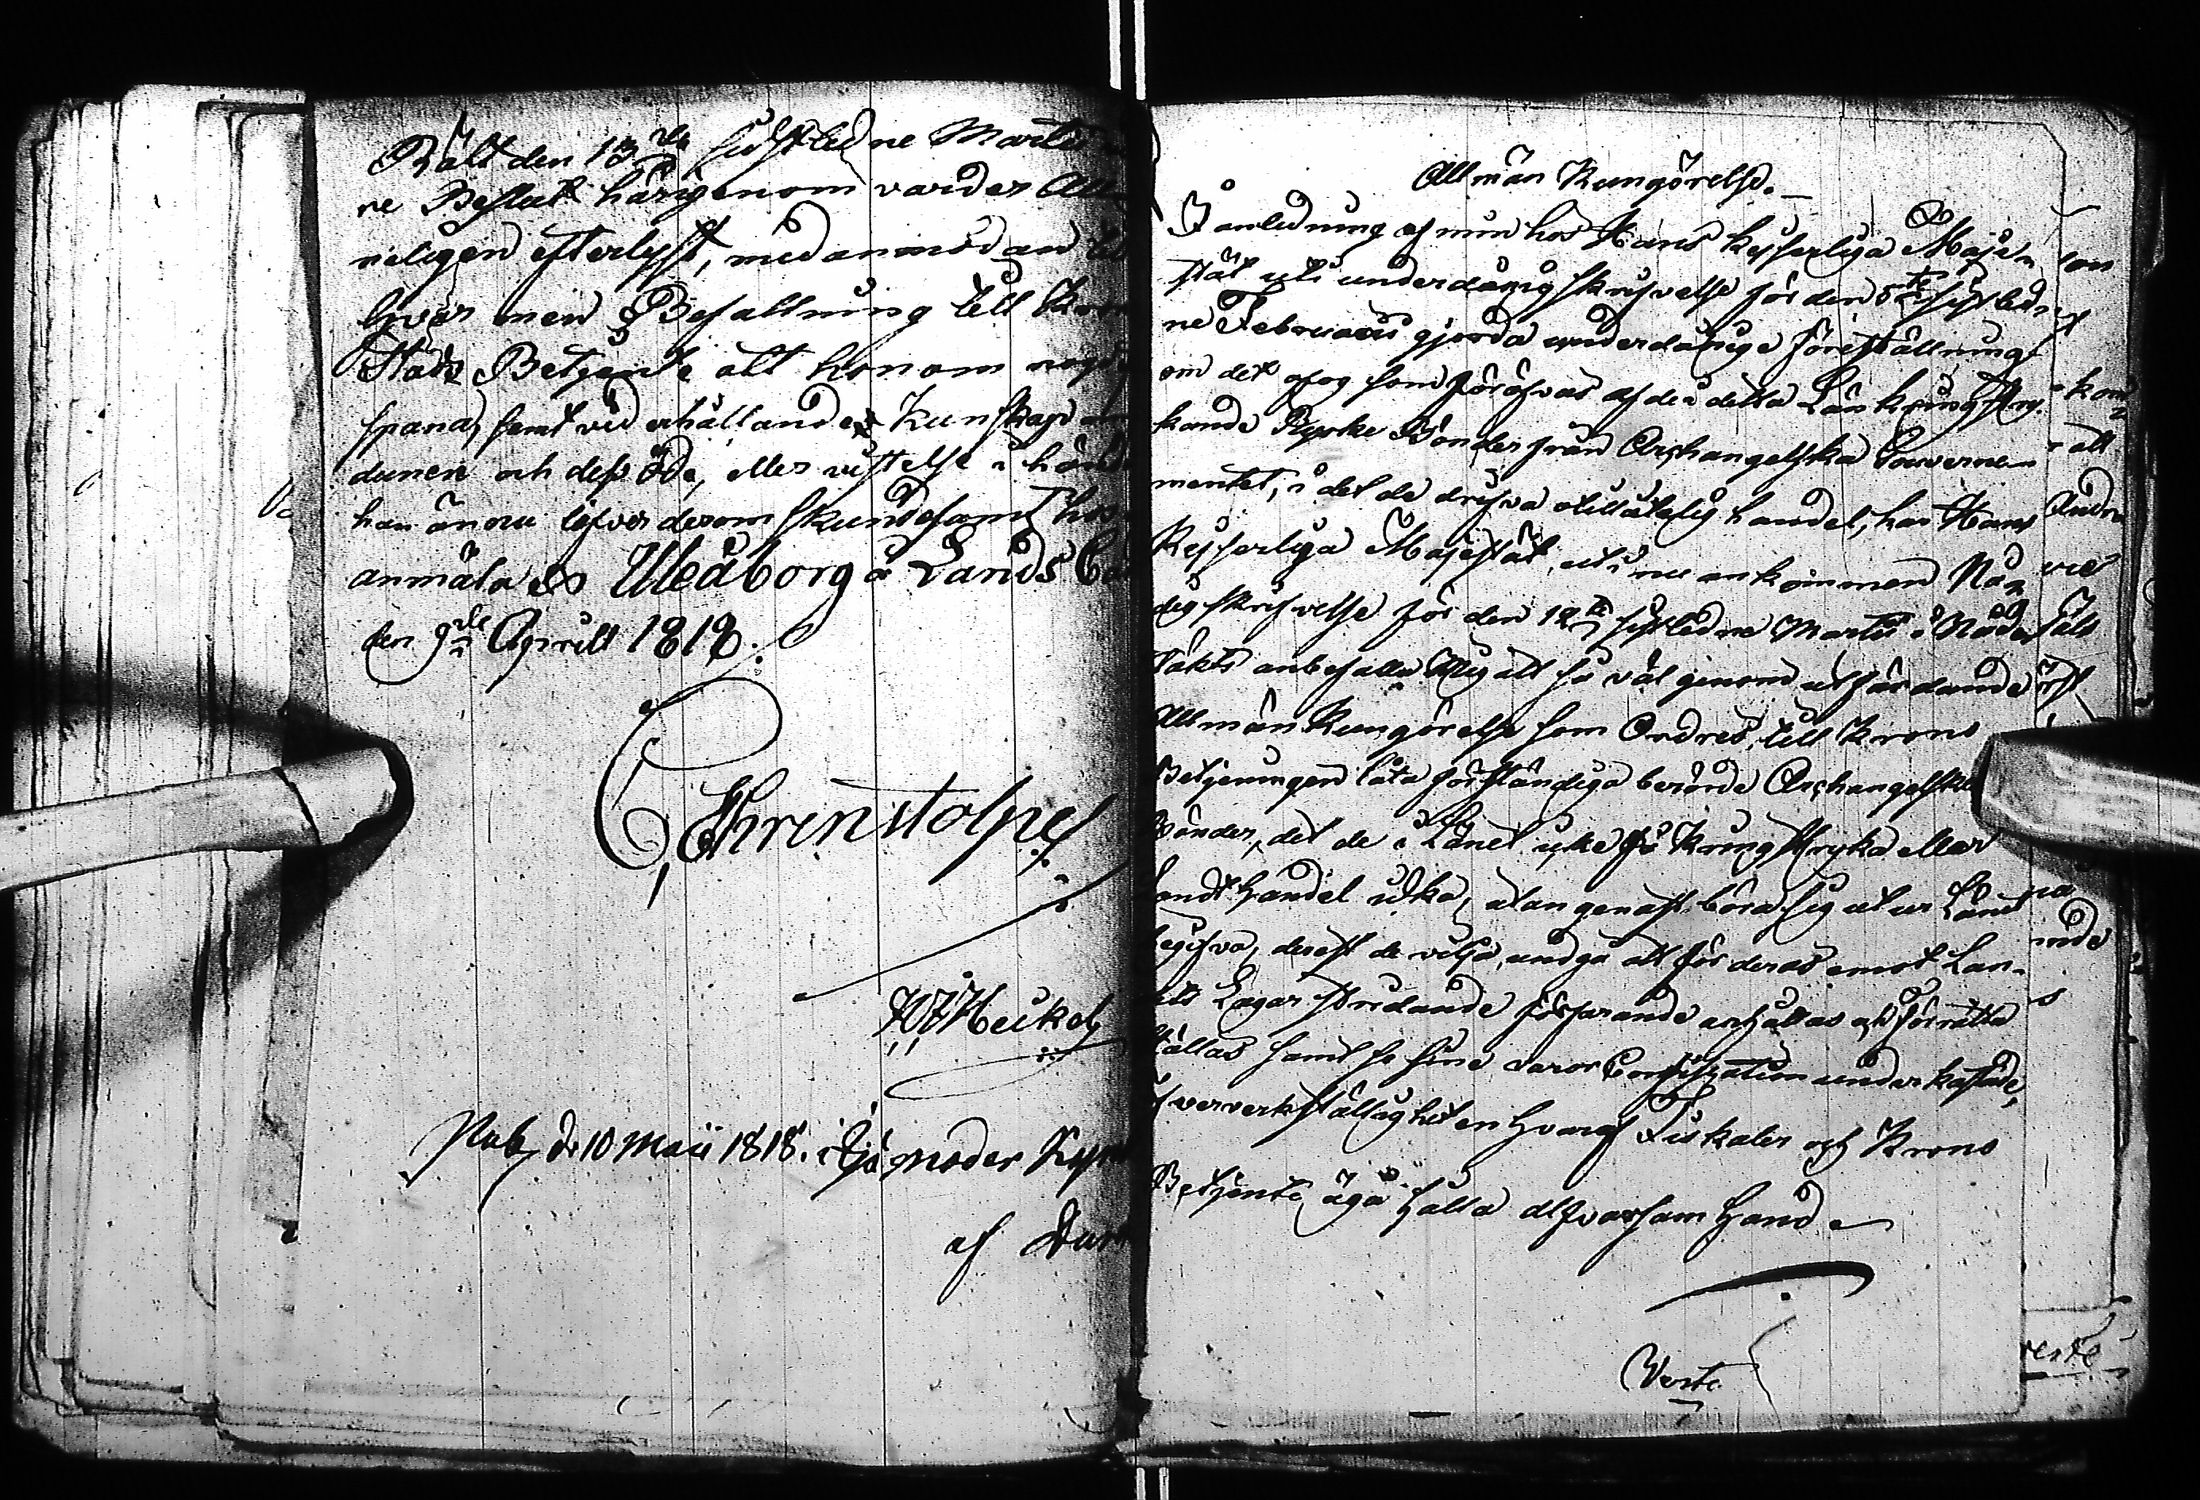 Rätt den 13de sidstledne Martii
ne Beslut härigenom varder All
neligen efterlyst, med anmodan
hvar men Befallning till Kron
Stads Betjente att honom noga
spana, samt vid erhållande Kunskap om
dennes och dess öde, eller vistelse i hän
han ännu lefver derom skyndesamt hos
anmäla. Uleåborg å Lands Ca
den 9de Aprill 1818.
C. Ehrenstolpe
H. H. Heikel
Publ. d. 10 Maii 1818. i Kjä moder Kyrk
af Dur
Allmän Kungörelse.
I anledning af min hos Hans Kejserliga Maje
stät uti underdånig skrifvelse för den 5te sistled
ne Februarii gjorda underdånige föreställning
om det ofog som föröfvas af de i detta Län kringstry
kande Ryske Bönder från Archangelska Gouverne
mentet, i det de drifva otillåtelig handel, har Hans
Kejserliga Majestät, uti nu ankommen Nå
dig skrifvelse för den 12te sistledne Martii i Nåder
täkts anbefalla Mig att så väl genom utfärdande
Allmän Kungörelse som Ordres till Krono
Betjeningen låta förständiga berörde Archangelska
Bönder, det de i Länet icke få kringstryka eller
Landthandel idka, utan genast böra sig utur Länet
begifva, derest de vilja undgå att för deras emot Lan
dets Lagar stridande förfarande anhållas och förrätta
ställas samt se sine varor Confiscation underkastade,
öfver verkställigheten hvaraf Fiskaler och Krono
Betjente äga hålla alfvarsam hand
Verte
son
kom
att
Andr
vid
Fält
nde
verte